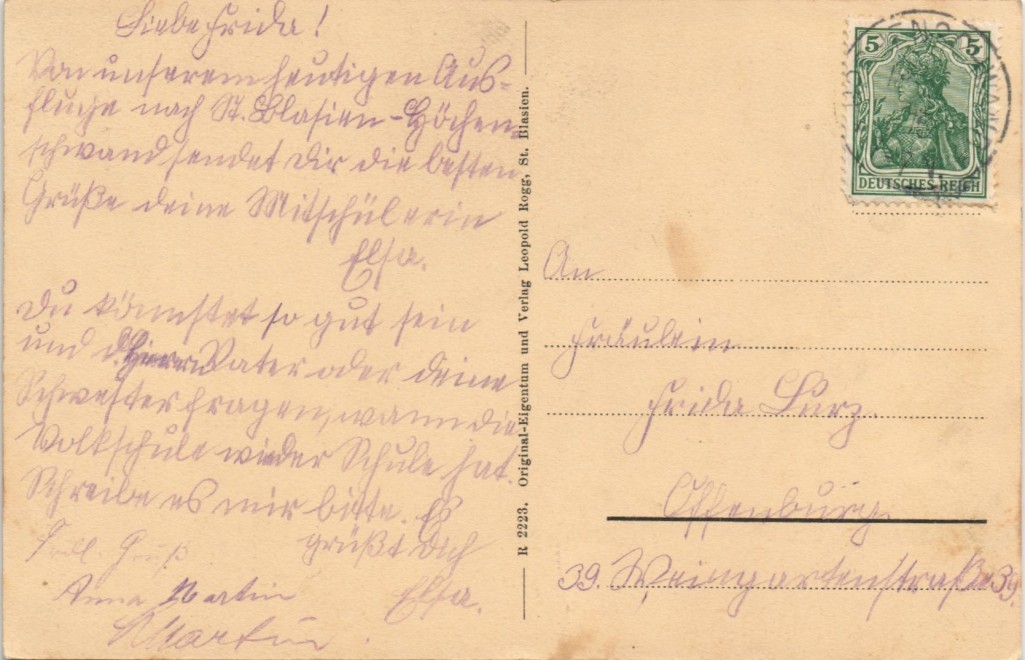 Liebe Frida!
Von unserem heutigen Aus-
fluge nach St. Blasien-Höchen-
schwand sendet Dir die besten
Grüße deine Mitschülerin
Elsa.
Du könntest so gut sein
und d. Herrn Vater oder deine
Schwester fragen, wann die
Volkschule wieder Schule hat.
Schreibe es mir bitte. Es
grüßt Dich
Elsa.
Frdl. Gruß
Anna Martin
Martin
R 2223. Original-Eigentum und Verlag Leopold Rogg, St. Blasien.
5 5
DEUTSCHES REICH
An
Fräulein
Frida Lurz.
Offenburg.
39. Weingartenstraße 39.